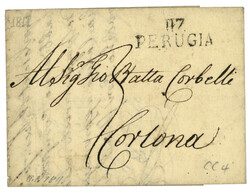 1811
117
PERUGIA
Al Sig.r Gio Batta Corbelli
Cortona
CC4